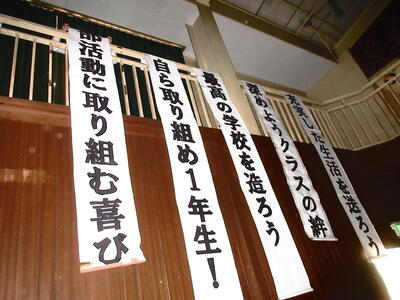 充実した生活を送ろう
深めようクラスの絆
最高の学校を造ろう
自ら取り組め1年生！
部活動に取り組む喜び